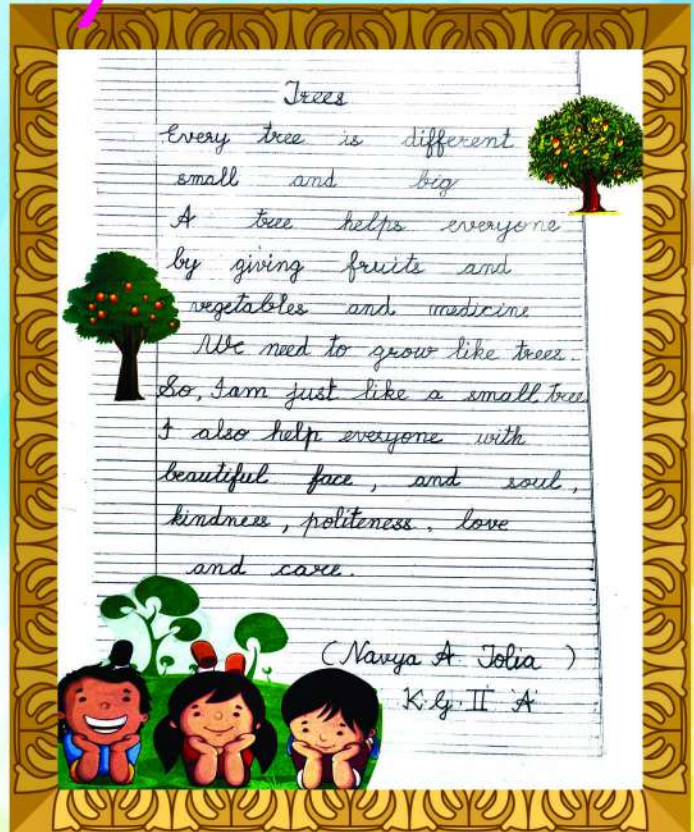 Trees
Every tree is different
small and big
A tree helps everyone
by giving fruits and
vegetables and medicine
We need to grow like trees.
So, I am just like a small tree
I also help everyone with
beautiful face, and soul,
kindness, politeness, love
and care.
(Navya A. Tolia )
K.G. II 'A'